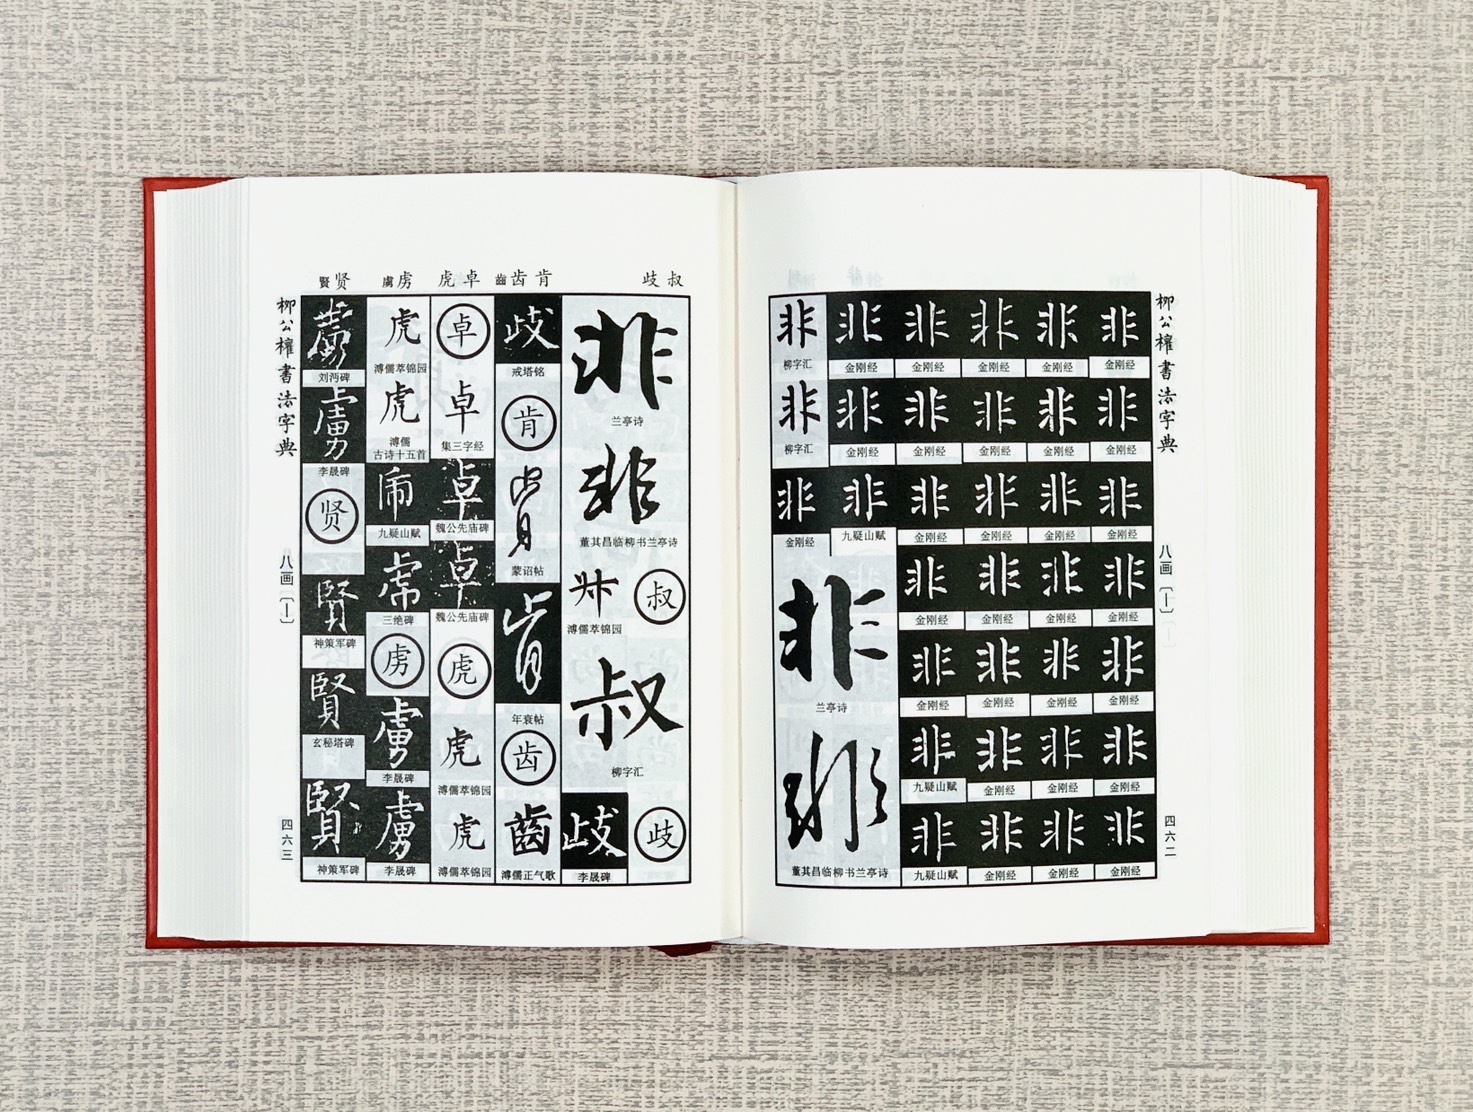 柳公權書法字典
八画〔丨〕
四六二
非
金刚经
非
金刚经
非
金刚经
非
金刚经
非
金刚经
非
金刚经
非
金刚经
非
金刚经
非
金刚经
非
金刚经
非
金刚经
非
金刚经
非
金刚经
非
金刚经
非
金刚经
非
金刚经
非
金刚经
非
金刚经
非
金刚经
非
金刚经
非
金刚经
非
金刚经
非
金刚经
非
金刚经
非
金刚经
非
金刚经
非
九疑山赋
非
九疑山赋
非
金刚经
非
金刚经
非
九疑山赋
非
柳字汇
非
柳字汇
非
金刚经
非
兰亭诗
非
董其昌临柳书兰亭诗
歧叔
齒齿肯
虎卓
虜虏
賢贤
非
兰亭诗
非
董其昌临柳书兰亭诗
叔
叔
溥儒萃锦园
叔
柳字汇
歧
歧
李晟碑
歧
戒塔铭
肯
肯
蒙诏帖
肯
年衰帖
齿
齒
溥儒正气歌
卓
卓
集三字经
卓
魏公先庙碑
卓
魏公先庙碑
虎
虎
溥儒萃锦园
虎
溥儒萃锦园
虎
溥儒萃锦园
虎
溥儒
古诗十五首
虎
九疑山赋
虎
三绝碑
虏
虜
李晟碑
虜
李晟碑
虜
刘沔碑
虜
李晟碑
贤
賢
神策军碑
賢
玄秘塔碑
賢
神策军碑
柳公權書法字典
八画〔丨〕
四六三